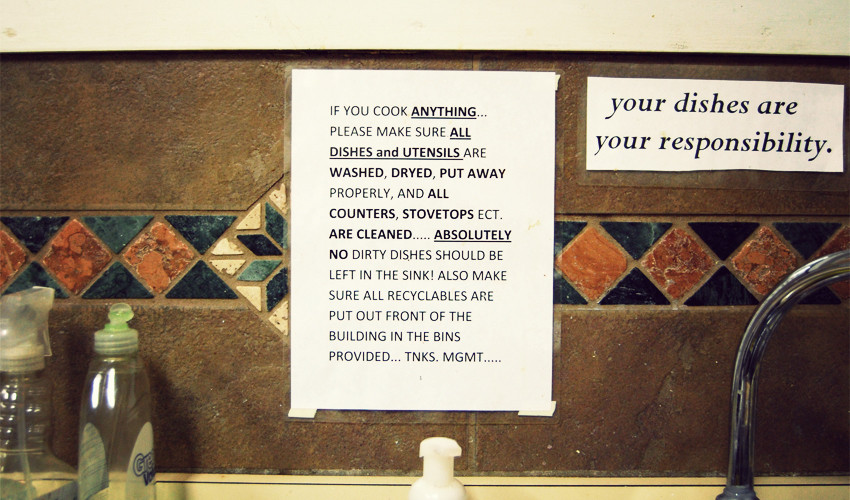 IF YOU COOK ANYTHING...
PLEASE MAKE SURE ALL
DISHES and UTENSILS ARE
WASHED, DRYED, PUT AWAY
PROPERLY, AND ALL
COUNTERS, STOVETOPS ECT.
ARE CLEANED..... ABSOLUTELY
NO DIRTY DISHES SHOULD BE
LEFT IN THE SINK! ALSO MAKE
SURE ALL RECYCLABLES ARE
PUT OUT FRONT OF THE
BUILDING IN THE BINS
PROVIDED... TNKS. MGMT.....
your dishes are
your responsibility.